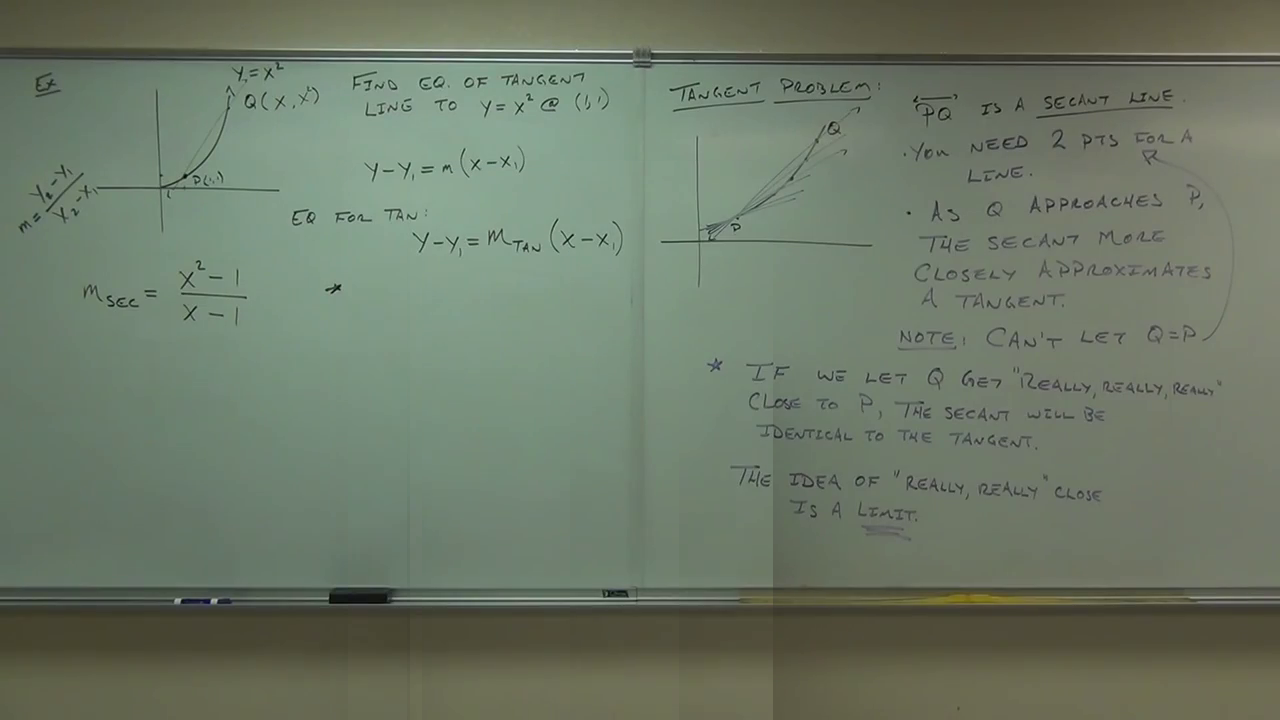 Ex
Y₁ = X²
Q(X, X²)
P(1,1)
m = Y₂ - Y₁ / X₂ - X₁
FIND EQ. OF TANGENT
LINE TO Y = X² @ (1,1)
Y - Y₁ = m(X - X₁)
EQ FOR TAN:
Y - Y₁ = m_TAN (X - X₁)
m_SEC = X² - 1 / X - 1
*
TANGENT PROBLEM:
Q
P
"PQ" IS A SECANT LINE.
· YOU NEED 2 PTS FOR A
LINE.
· AS Q APPROACHES P,
THE SECANT MORE
CLOSELY APPROXIMATES
A TANGENT.
NOTE: CAN'T LET Q=P
* IF WE LET Q GET "REALLY, REALLY, REALLY"
CLOSE TO P, THE SECANT WILL BE
IDENTICAL TO THE TANGENT.
THE IDEA OF "REALLY, REALLY" CLOSE
IS A LIMIT.